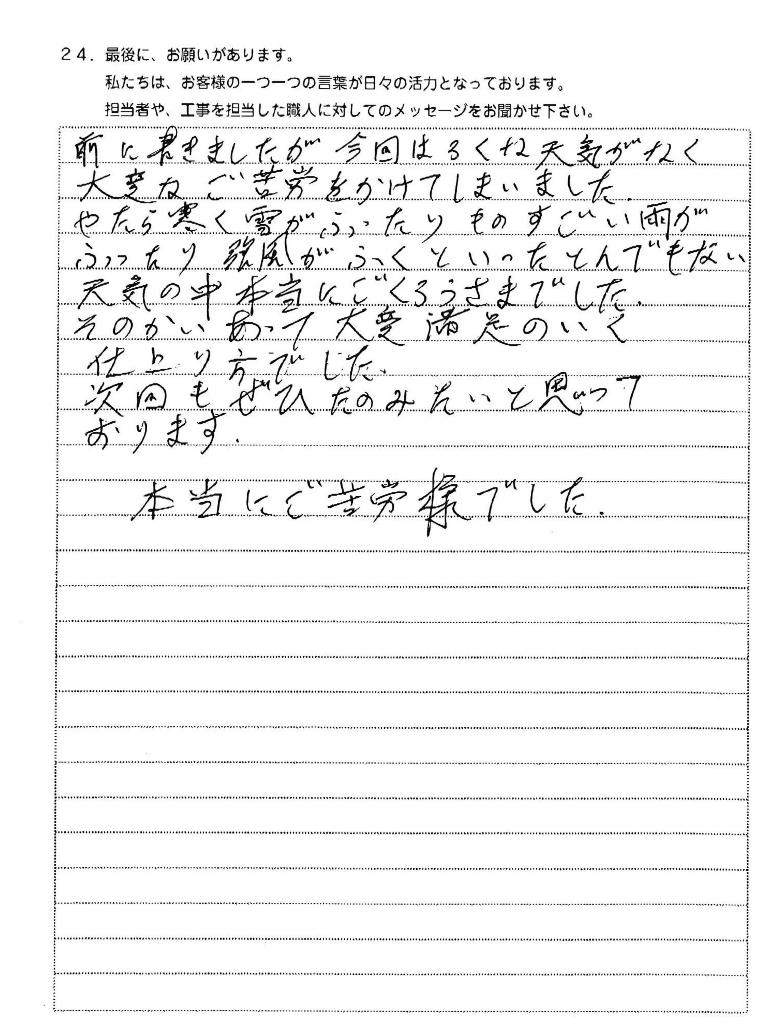 24．最後に、お願いがあります。
私たちは、お客様の一つ一つの言葉が日々の活力となっております。
担当者や、工事を担当した職人に対してのメッセージをお聞かせ下さい。
前に書きましたが今回はろくな天気がなく
大変なご苦労をかけてしまいました.
やたら寒く雪がふったりものすごい雨が
ふったり強風がふくといったとんでもない
天気の中本当にごくろうさまでした.
そのかいあって大変満足のいく
仕上り方でした.
次回もぜひたのみたいと思って
おります.
本当にご苦労様でした.